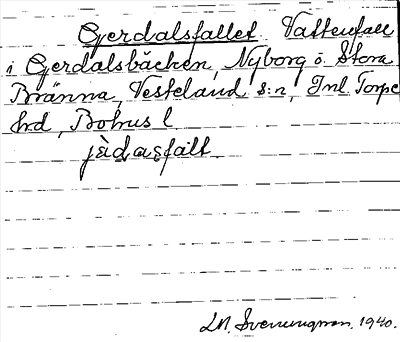 Gerdalsfallet Vattenfall
i Gerdalsbäcken, Nyborg o. Stora
Bränna, Vesteland s:n, Inl. Torpe
hrd, Bohus l.
jàdasfalt
J.N. Svenningsson. 1940.